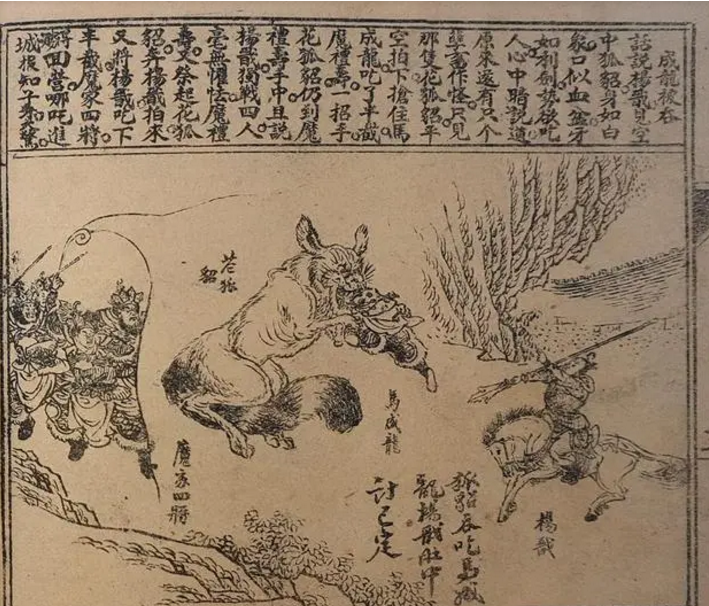 成龍被吞
話說楊戩見空
中狐貂身如白
象口似血盆牙
如利劍勢欲吃
人心中暗說道
原來還有只个
孽畜作怪只見
那隻花狐貂平
空拍下搶住馬
成龍吃了半截
魔禮壽一招手
花狐貂仍到魔
禮壽手中且說
楊戩獨戰四人
毫無懼怯魔禮
壽又祭起花狐
貂奔楊戩拍來
又將楊戩吃下
半截魔家四將
得勝回營哪吒進
城報知子牙驚
楊戩
狐貂吞吃馬成
龍楊戩肚中
計已定
馬成龍
花狐
貂
魔家四將